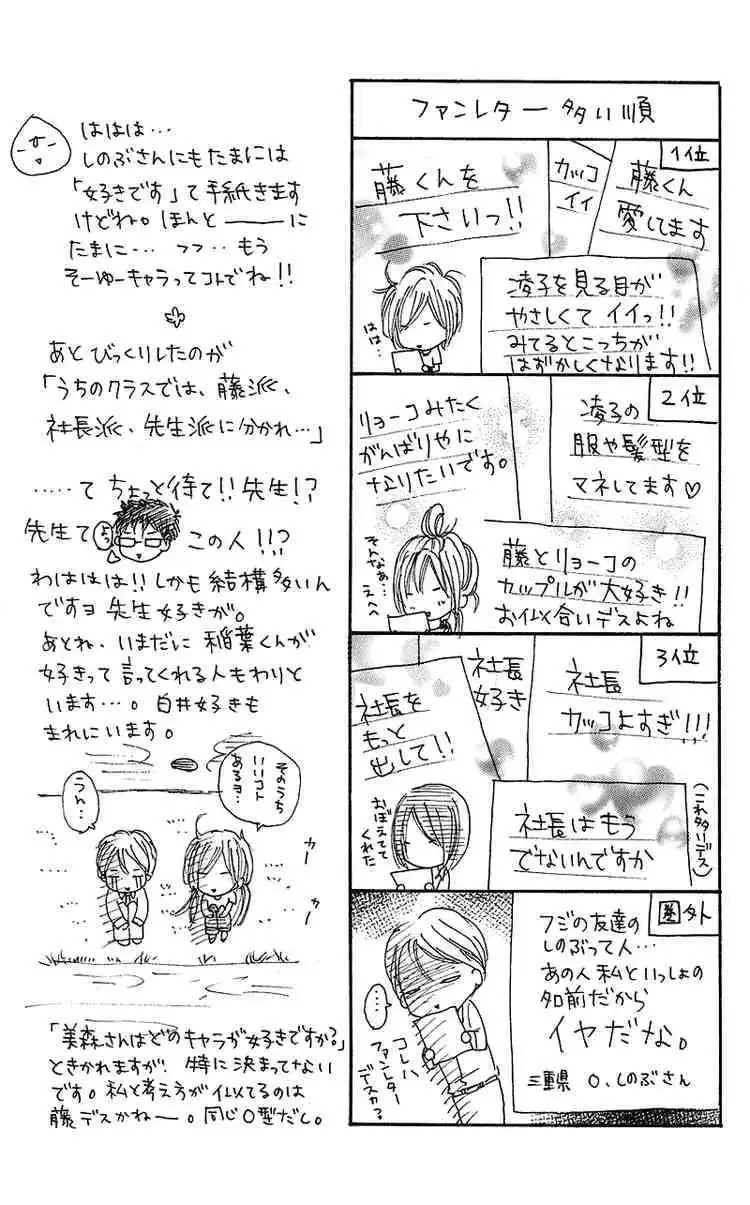 ファンレター多い順
1位
藤くん
愛してます
カッコ
イイ
藤くんを
下さいっ!!
凌子を見る目が
やさしくてイイっ!!
みてるとこっちが
はずかしくなります!!
はは…
2位
凌子の
服や髪型を
マネしてます♡
リョーコみたく
がんばりやに
なりたいです。
藤とリョーコの
カップルが大好き!!
お似合いデスよね
そんなぁ…
えへへ
3位
社長
カッコよすぎ!!!
社長
好き
社長を
もっと
出して!!
社長はもう
でないんですか
(これ多いデス)
おぼえてて
くれた
圏外
フジの友達の
しのぶって人…
あの人私といっしょの
名前だから
イヤだな。
三重県 O.しのぶさん
…
コレハ
ファンレター
デスカ?
ははは…
しのぶさんにもたまには
「好きです」て手紙きます
けどね。ほんと――に
たまに… フフ‥もう
そーゆーキャラってコトでね!!
あとびっくりしたのが
「うちのクラスでは、藤派、
社長派、先生派に分かれ…」
……て ちょっと待て!! 先生!?
先生て
よっ
この人!!?
わははは!!しかも結構多いん
ですヨ先生好きが。
あとね、いまだに稲葉くんが
好きって言ってくれる人もわりと
います…。白井好きも
まれにいます。
そのうち
いいコト
あるヨ…
うん…
カー
カー
「美森さんはどのキャラが好きですか?」
ときかれますが、特に決まってない
です。私と考え方が似てるのは
藤デスかねー。同じO型だし。